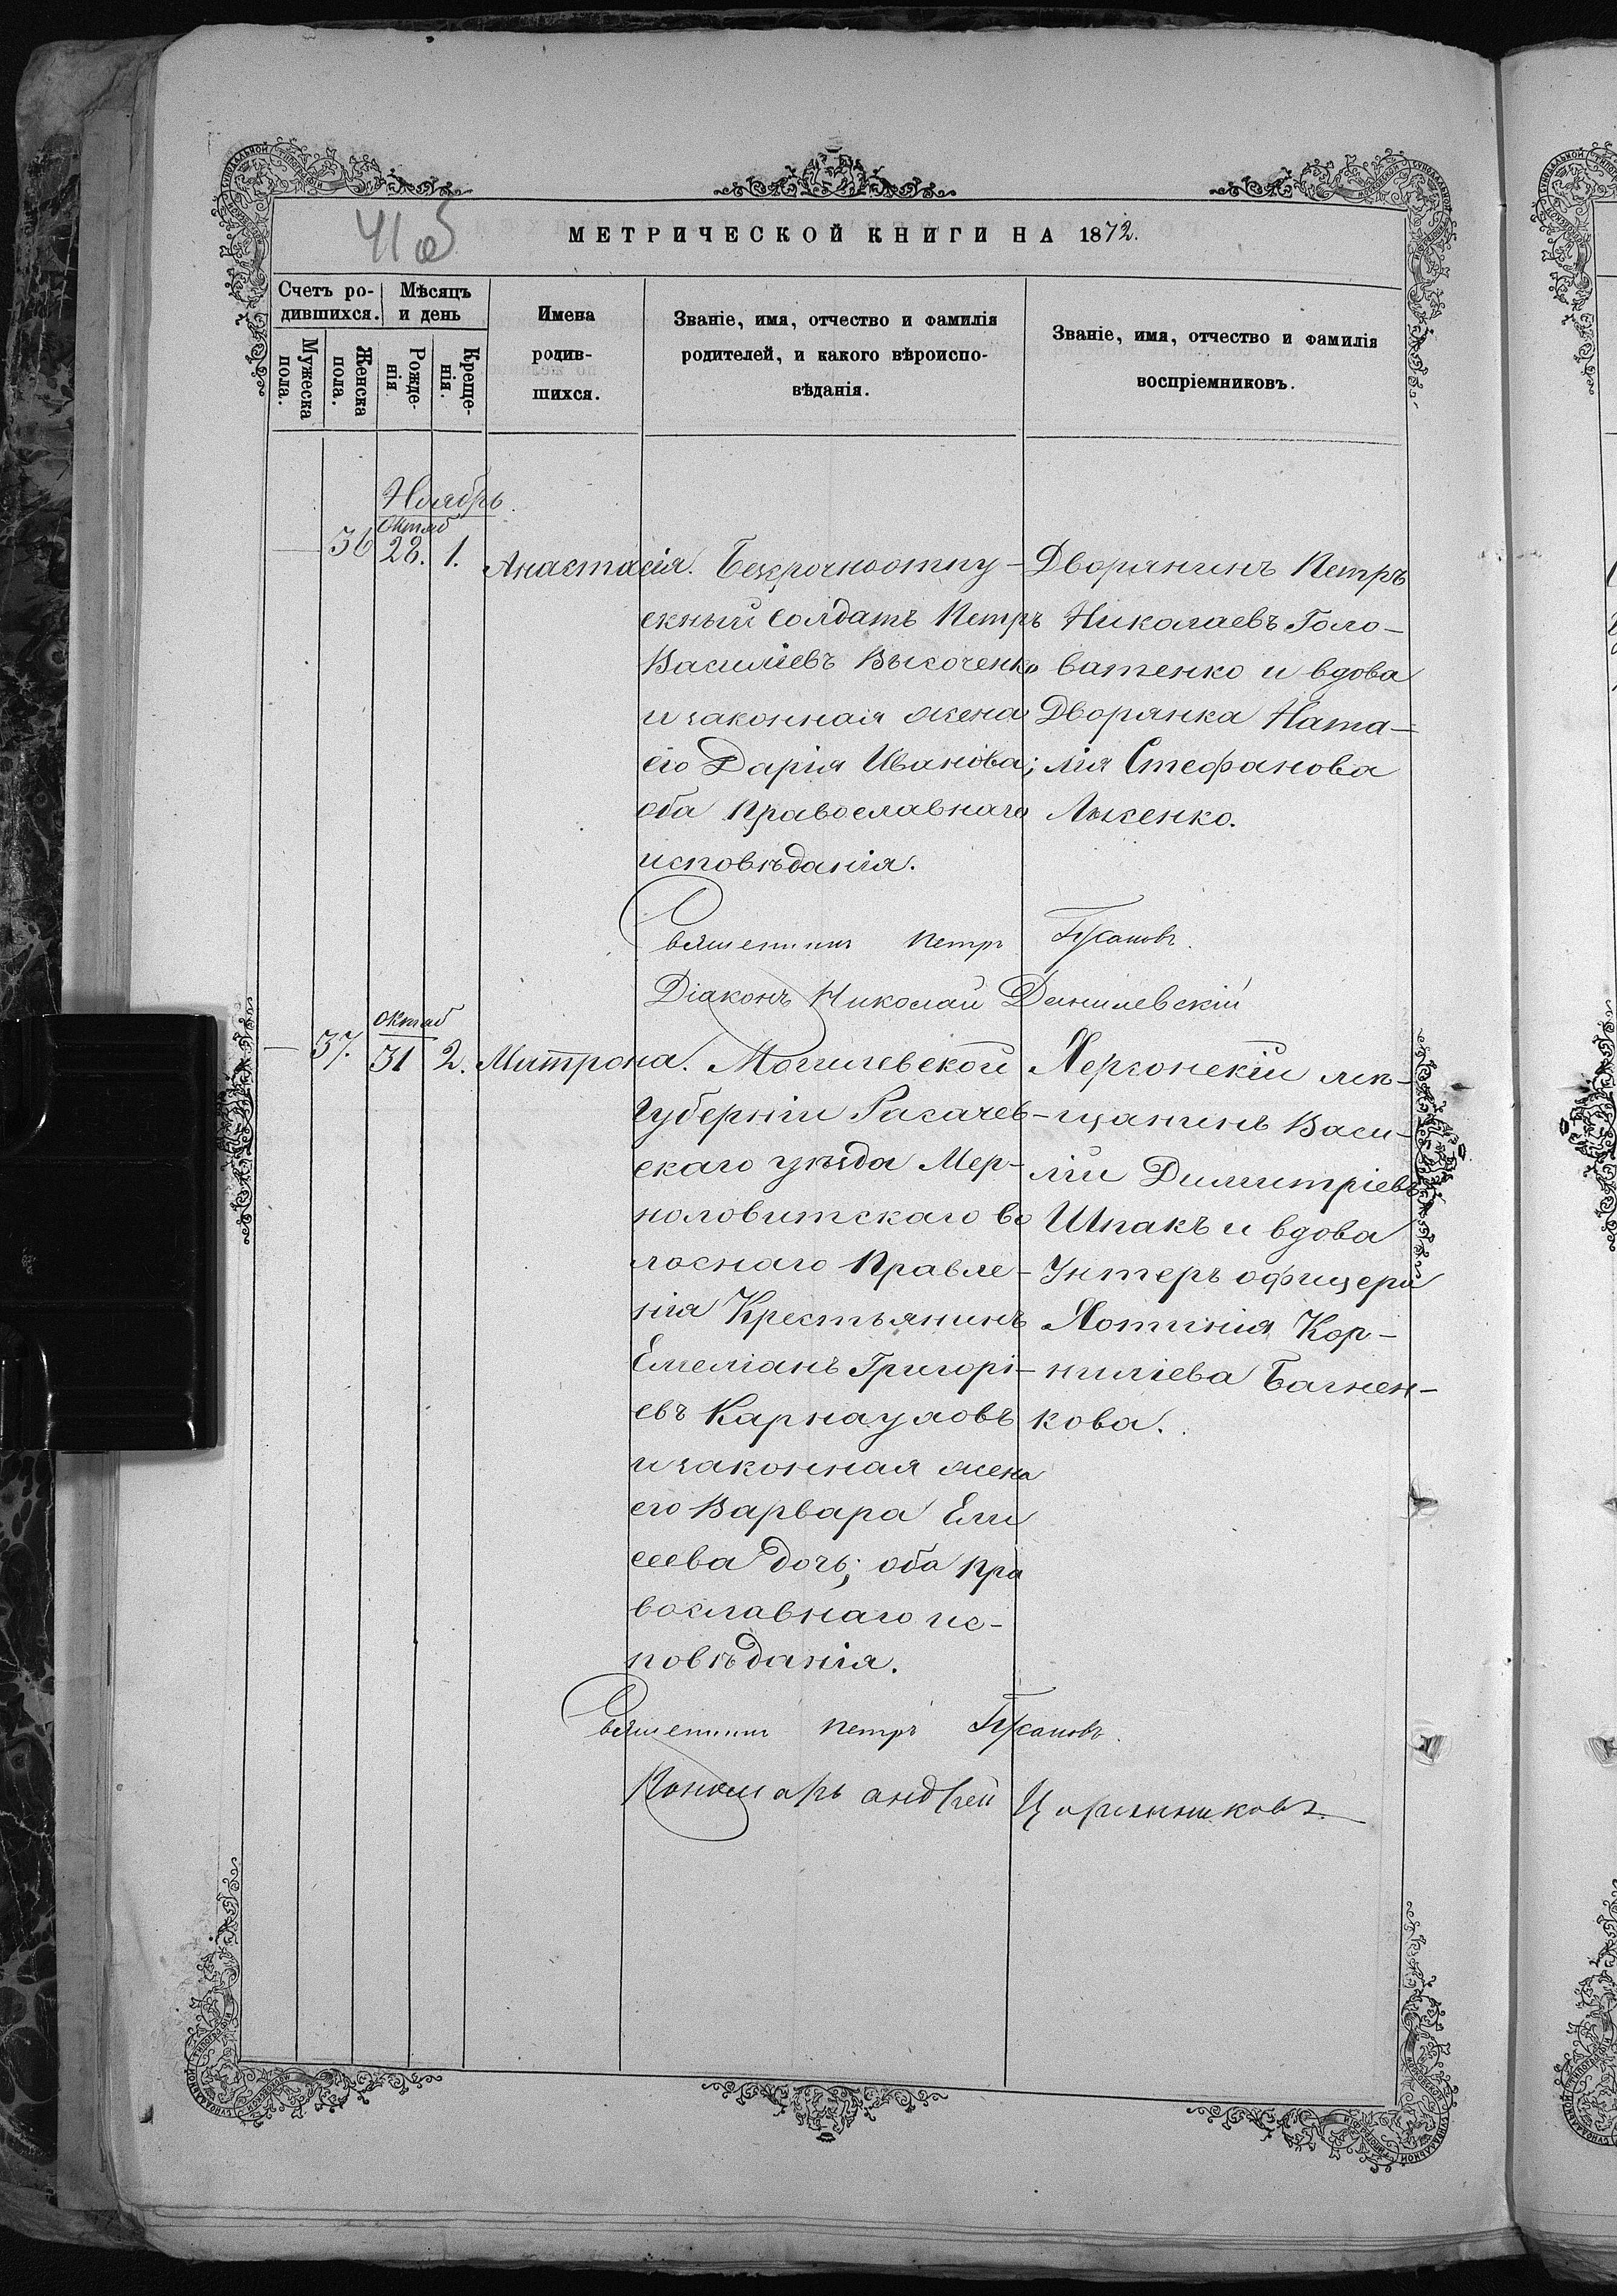 41об
МЕТРИЧЕСКОЙ КНИГИ НА 1872.
Счетъ ро-
дившихся.
Мужеска
пола.
Женска
пола.
Мѣсяцъ
и день
Рожде-
нія
Креще-
нія.
Имена
родив-
шихся.
Званіе, имя, отчество и фамилія
родителей, и какого вѣроиспо-
вѣданія.
Званіе, имя, отчество и фамилія
воспріемниковъ.
Ноябрь.
Октяб
— 36 28. 1. Анастасія.
Безсрочноотпу-
скный солдатъ Петръ
Василіевъ Высоченко
и законная жена
его Дарія Иванова;
оба православнаго
исповѣданія.
Дворянинъ Петръ
Николаевъ Голо-
ватенко и вдова
Дворянка Ната-
лія Стефанова
Лысенко.
Священникъ Петръ
Діаконъ Николай Данилевскій
Октяб
— 37. 31 2. Митрона.
Могилевской
Губерніи Рагачев-
скаго уѣзда Мер-
половитскаго во
лоснаго Правле-
нія Крестьянинъ
Емеліанъ Григорі-
евъ Карнауховъ
и законная жена
его Варвара Ели
сеева дочь; оба пра
вославнаго ис-
повѣданія.
Херсонскій мѣ-
щанинъ Васи-
лій Димитріевъ
Шпакъ и вдова
Унтеръ офицера
Хотинія Кор-
ниліева Багнен-
кова.
Священникъ Петръ
Пономарь Андрей